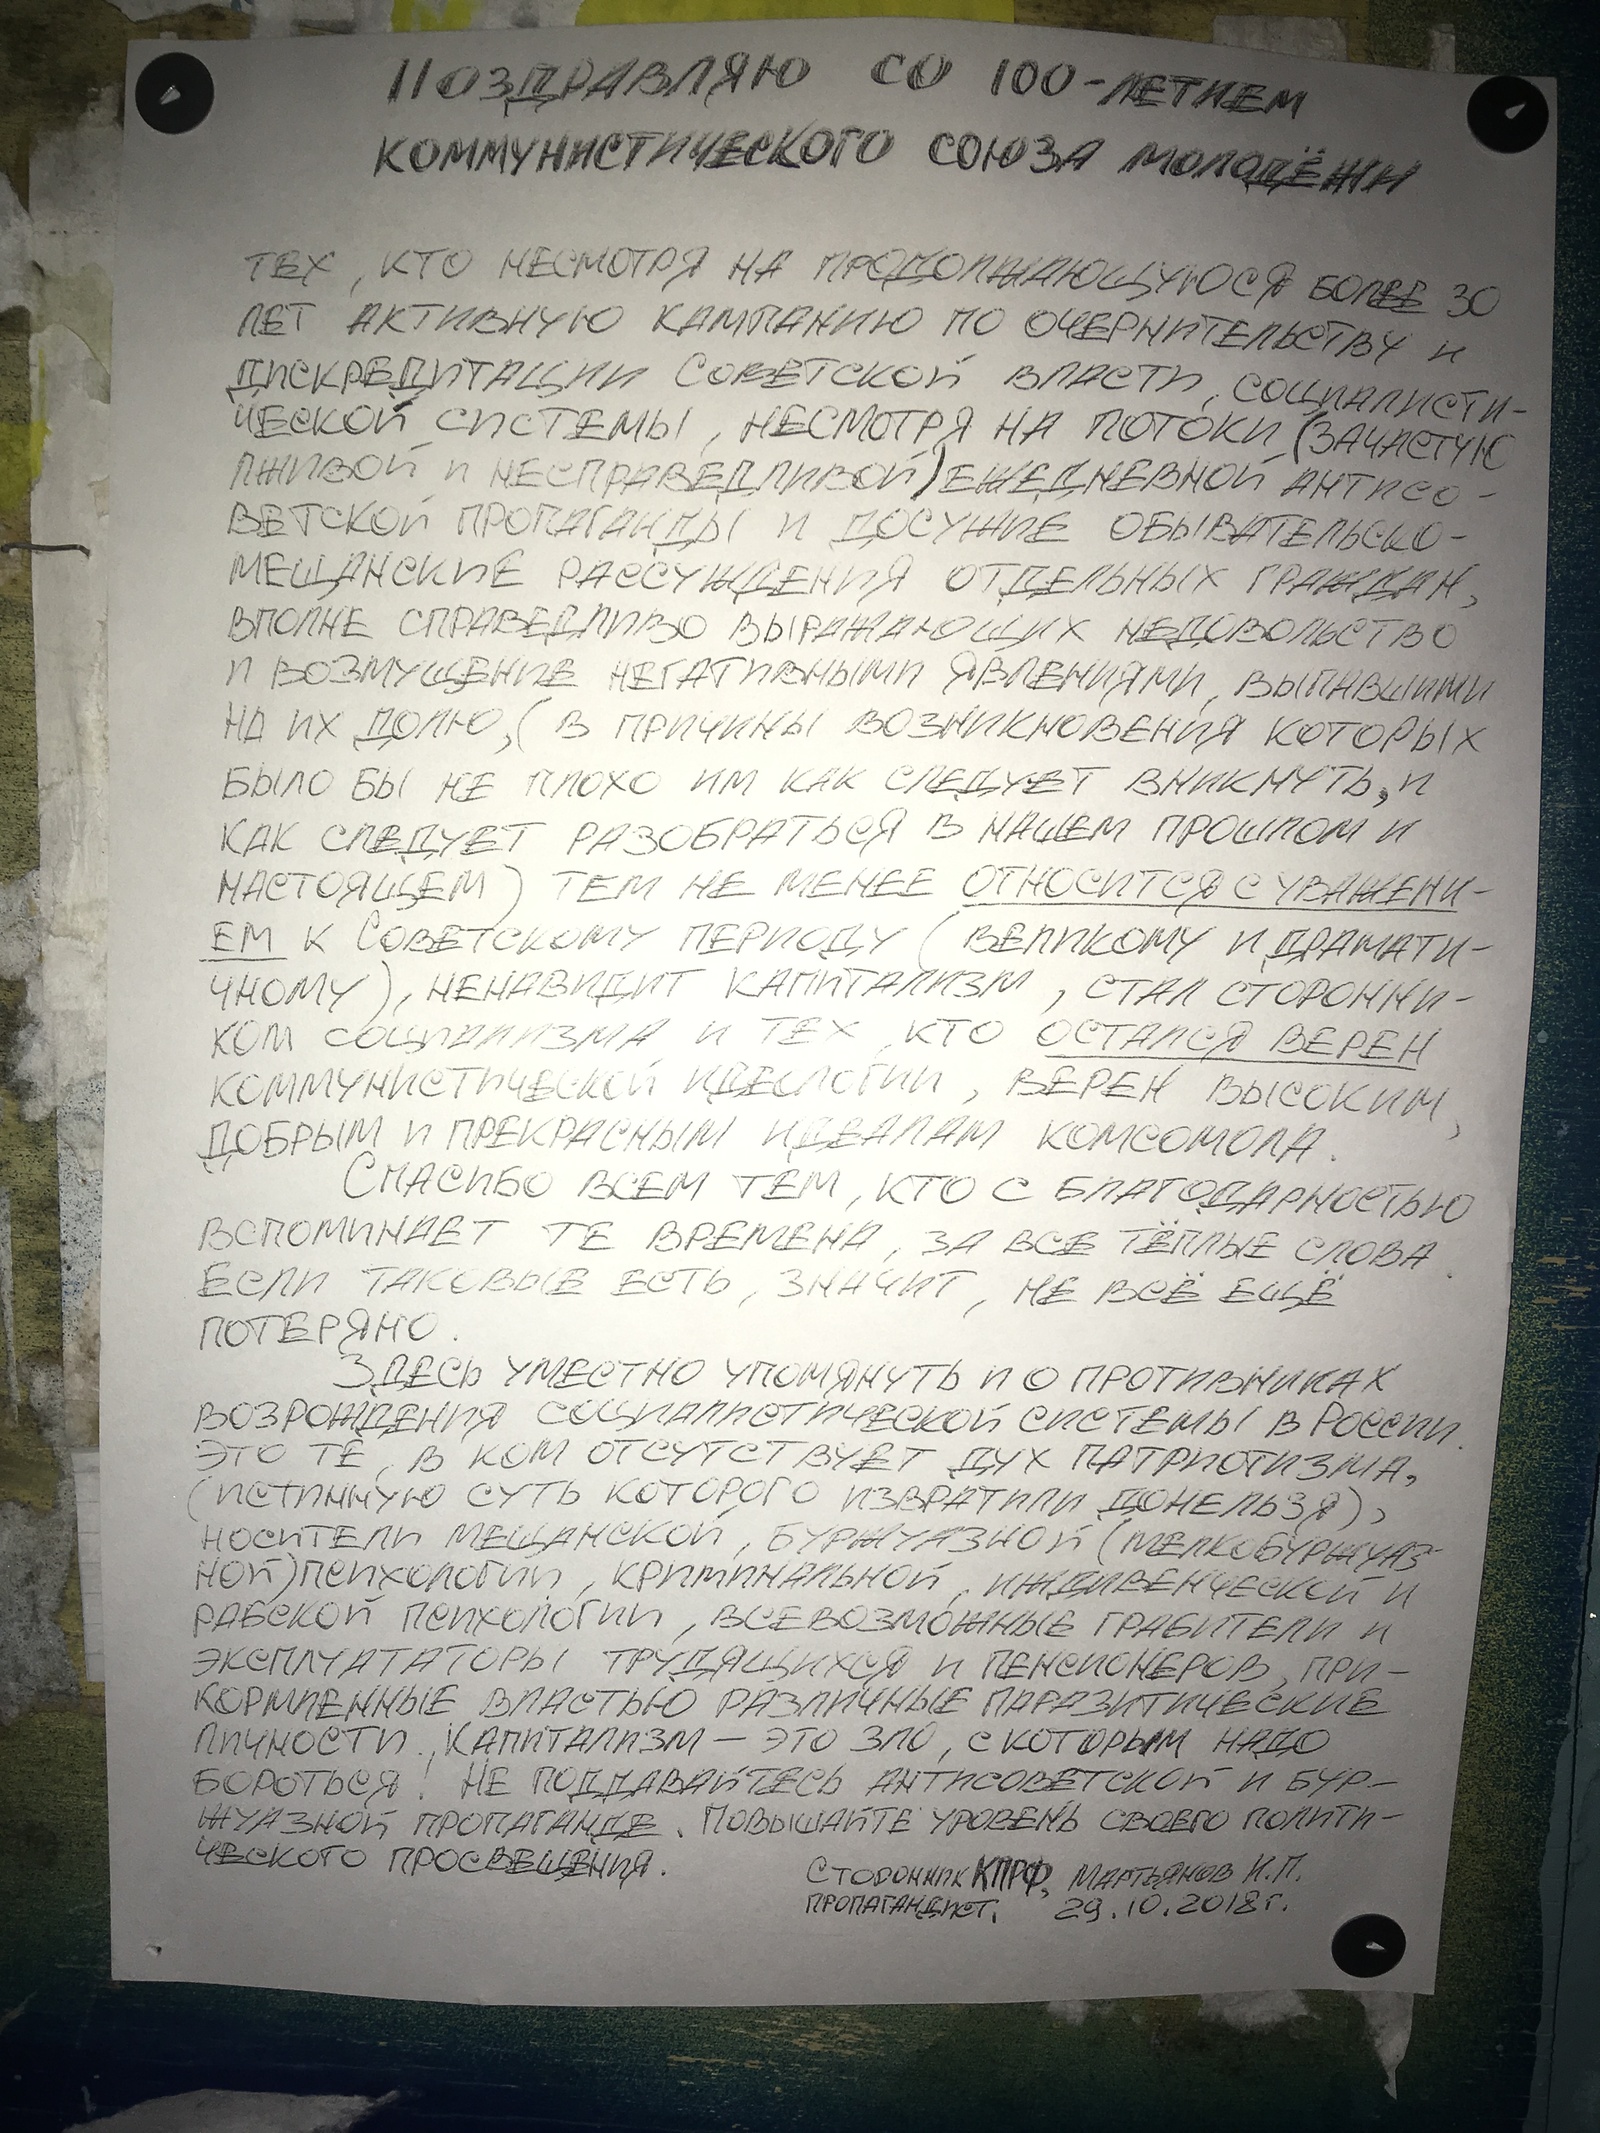 ПОЗДРАВЛЯЮ СО 100-ЛЕТИЕМ
КОММУНИСТИЧЕСКОГО СОЮЗА МОЛОДЁЖИ
ТЕХ, КТО НЕСМОТРЯ НА ПРОДОЛЖАЮЩУЮСЯ БОЛЕЕ 30
ЛЕТ АКТИВНУЮ КАМПАНИЮ ПО ОЧЕРНИТЕЛЬСТВУ И
ДИСКРЕДИТАЦИИ СОВЕТСКОЙ ВЛАСТИ, СОЦИАЛИСТИ-
ЧЕСКОЙ СИСТЕМЫ, НЕСМОТРЯ НА ПОТОКИ (ЗАЧАСТУЮ
ЛЖИВОЙ И НЕСПРАВЕДЛИВОЙ) ЕЖЕДНЕВНОЙ АНТИСО-
ВЕТСКОЙ ПРОПАГАНДЫ И ДОСУЖИЕ ОБЫВАТЕЛЬСКО-
МЕЩАНСКИЕ РАССУЖДЕНИЯ ОТДЕЛЬНЫХ ГРАЖДАН,
ВПОЛНЕ СПРАВЕДЛИВО ВЫРАЖАЮЩИХ НЕДОВОЛЬСТВО
И ВОЗМУЩЕНИЕ НЕГАТИВНЫМИ ЯВЛЕНИЯМИ, ВЫПАВШИМИ
НА ИХ ДОЛЮ, (В ПРИЧИНЫ ВОЗНИКНОВЕНИЯ КОТОРЫХ
БЫЛО БЫ НЕ ПЛОХО ИМ КАК СЛЕДУЕТ ВНИКНУТЬ, И
КАК СЛЕДУЕТ РАЗОБРАТЬСЯ В НАШЕМ ПРОШЛОМ И
НАСТОЯЩЕМ) ТЕМ НЕ МЕНЕЕ ОТНОСИТСЯ С УВАЖЕНИ-
ЕМ К СОВЕТСКОМУ ПЕРИОДУ (ВЕЛИКОМУ И ДРАМАТИ-
ЧНОМУ), НЕНАВИДИТ КАПИТАЛИЗМ, СТАЛ СТОРОННИ-
КОМ СОЦИАЛИЗМА И ТЕХ, КТО ОСТАЛСЯ ВЕРЕН
КОММУНИСТИЧЕСКОЙ ИДЕОЛОГИИ, ВЕРЕН ВЫСОКИМ,
ДОБРЫМ И ПРЕКРАСНЫМ ИДЕАЛАМ КОМСОМОЛА.
СПАСИБО ВСЕМ ТЕМ, КТО С БЛАГОДАРНОСТЬЮ
ВСПОМИНАЕТ ТЕ ВРЕМЕНА, ЗА ВСЕ ТЁПЛЫЕ СЛОВА.
ЕСЛИ ТАКОВЫЕ ЕСТЬ, ЗНАЧИТ, НЕ ВСЁ ЕЩЁ
ПОТЕРЯНО.
ЗДЕСЬ УМЕСТНО УПОМЯНУТЬ И О ПРОТИВНИКАХ
ВОЗРОЖДЕНИЯ СОЦИАЛИСТИЧЕСКОЙ СИСТЕМЫ В РОССИИ.
ЭТО ТЕ, В КОМ ОТСУТСТВУЕТ ДУХ ПАТРИОТИЗМА,
(ИСТИННУЮ СУТЬ КОТОРОГО ИЗВРАТИЛИ ДОНЕЛЬЗЯ),
НОСИТЕЛИ МЕЩАНСКОЙ, БУРЖУАЗНОЙ (МЕЛКОБУРЖУАЗ-
НОЙ) ПСИХОЛОГИИ, КРИМИНАЛЬНОЙ, ИЖДИВЕНЧЕСКОЙ И
РАБСКОЙ ПСИХОЛОГИИ, ВСЕВОЗМОЖНЫЕ ГРАБИТЕЛИ И
ЭКСПЛУАТАТОРЫ ТРУДЯЩИХСЯ И ПЕНСИОНЕРОВ, ПРИ-
КОРМЛЕННЫЕ ВЛАСТЬЮ РАЗЛИЧНЫЕ ПАРАЗИТИЧЕСКИЕ
ЛИЧНОСТИ. КАПИТАЛИЗМ — ЭТО ЗЛО, С КОТОРЫМ НАДО
БОРОТЬСЯ! НЕ ПОДДАВАЙТЕСЬ АНТИСОВЕТСКОЙ И БУР-
ЖУАЗНОЙ ПРОПАГАНДЕ. ПОВЫШАЙТЕ УРОВЕНЬ СВОЕГО ПОЛИТИ-
ЧЕСКОГО ПРОСВЕЩЕНИЯ.
СТОРОННИК КПРФ, МАРТЬЯНОВ И.П.
ПРОПАГАНДИСТ. 29.10.2018 г.